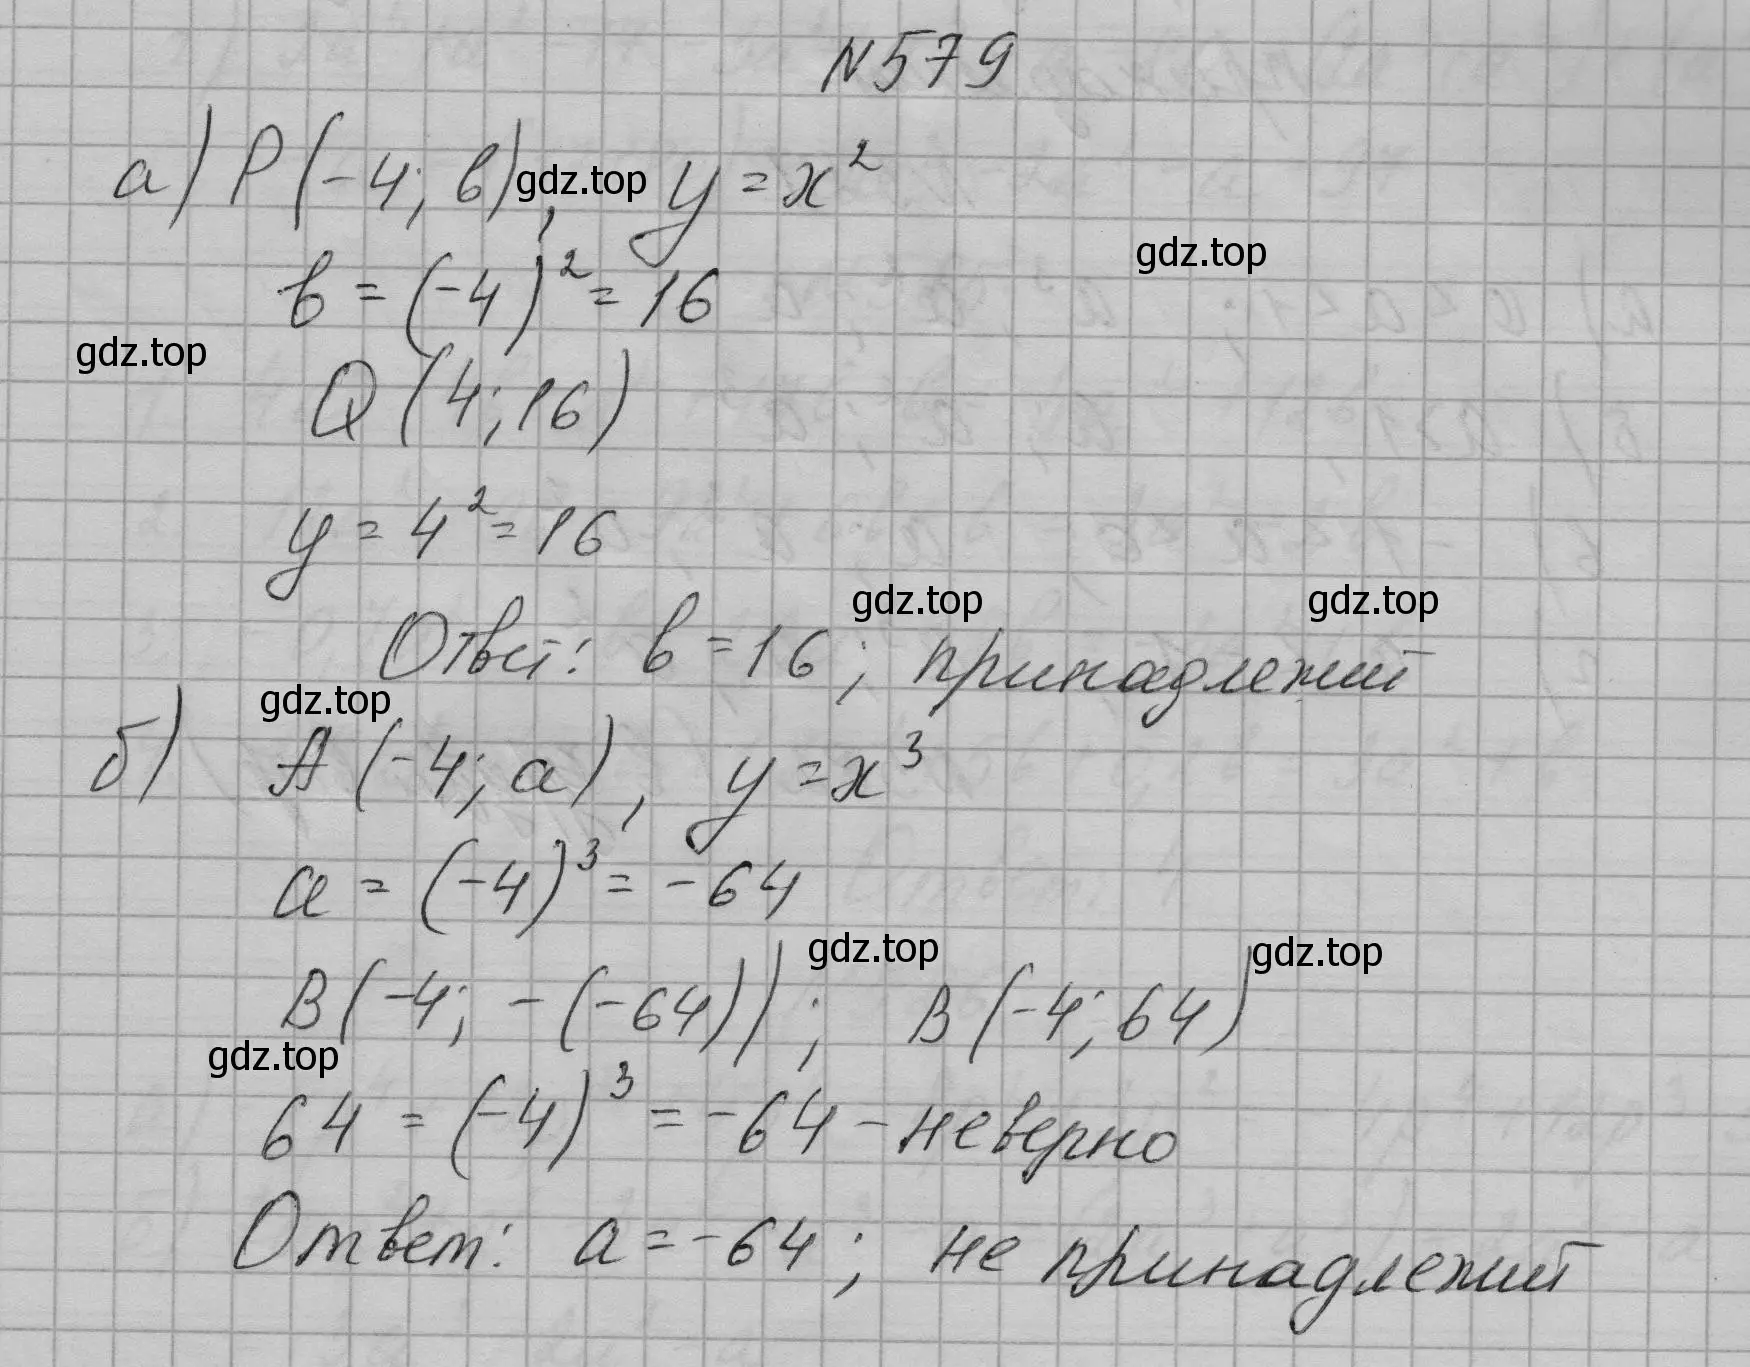 N579
а) P(-4; в), gdz.top y = x²
gdz.top
в = (-4)² = 16
gdz.top
Q (4; 16)
y = 4² = 16
gdz.top gdz.top
Ответ: в = 16; принадлежит
gdz.top
б) A (-4; a), y = x³
a = (-4)³ = -64
gdz.top gdz.top
B(-4; -(-64)); B(-4; 64)
gdz.top
64 = (-4)³ = -64 - неверно
Ответ: a = -64; не принадлежит